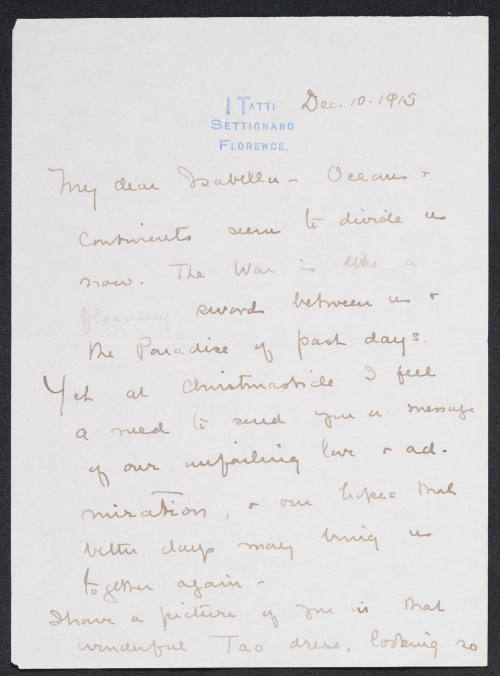 I TATTI
SETTIGNANO
FLORENCE.
Dec. 10. 1915
My dear Isabella – Oceans &
continents seem to divide us
now. The War is like a
flaming sword between us &
the Paradise of past days.
Yet at Christmastide I feel
a need to send you a message
of our unfailing love & ad-
miration, & our hopes that
better days may bring us
together again –
I have a picture of you in that
wonderful Tao dress, looking so